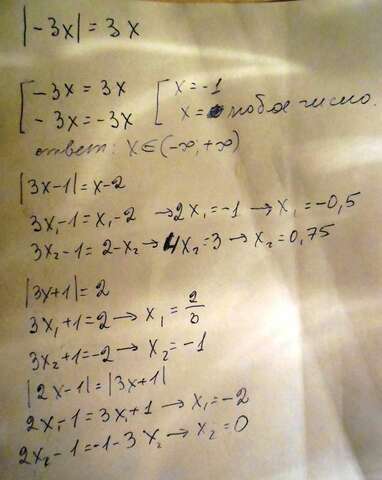 |-3x| = 3x
[ -3x = 3x [ x = -1
-3x = -3x x = любое число.
ответ: x∈(-∞; +∞)
|3x-1| = x-2
3x₁-1 = x₁-2 → 2x₁ = -1 → x₁ = -0,5
3x₂-1 = 2-x₂ → 4x₂ = 3 → x₂ = 0,75
|3x+1| = 2
3x₁+1 = 2 → x₁ = 2/3
3x₂+1 = -2 → x₂ = -1
|2x-1| = |3x+1|
2x₁-1 = 3x₁+1 → x₁ = -2
2x₂-1 = -1-3x₂ → x₂ = 0